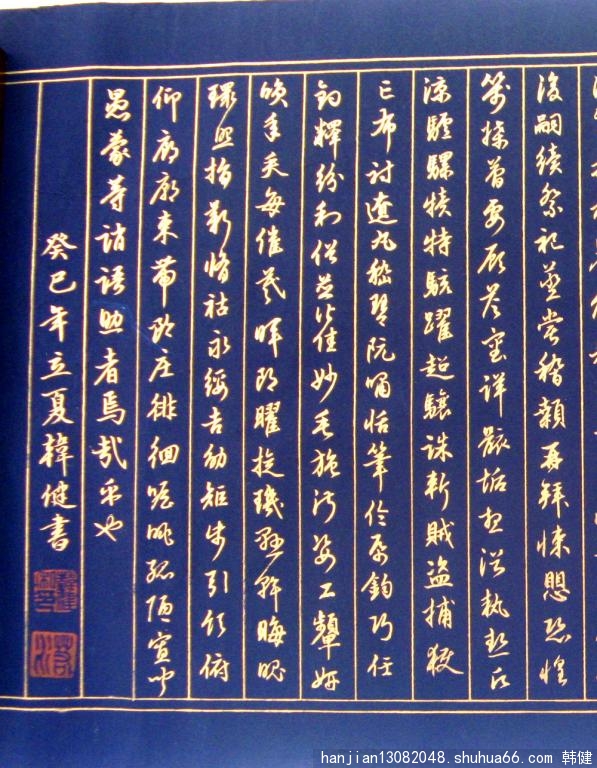 後嗣續祭祀蒸嘗稽顙再拜悚愳恐惶
箋牒簡要顧答審詳骸垢想浴執熱願
涼驢騾犢特駭躍超驤誅斬賊盜捕獲
亡布射遼丸嵇琴阮嘯恬筆倫紙鈞巧任
釣釋紛利俗並皆佳妙毛施淑姿工顰妍
咲年矢每催羲暉朗曜旋璣懸斡晦魄
環照指薪脩祜永綏吉劭矩步引領俯
仰廊廟束帶矜庄徘徊瞻眺孤陋寡聞
愚蒙等誚語助者焉哉乎也
癸巳年立夏韓健書
hanjian13082048.shuhua66.com 韩健